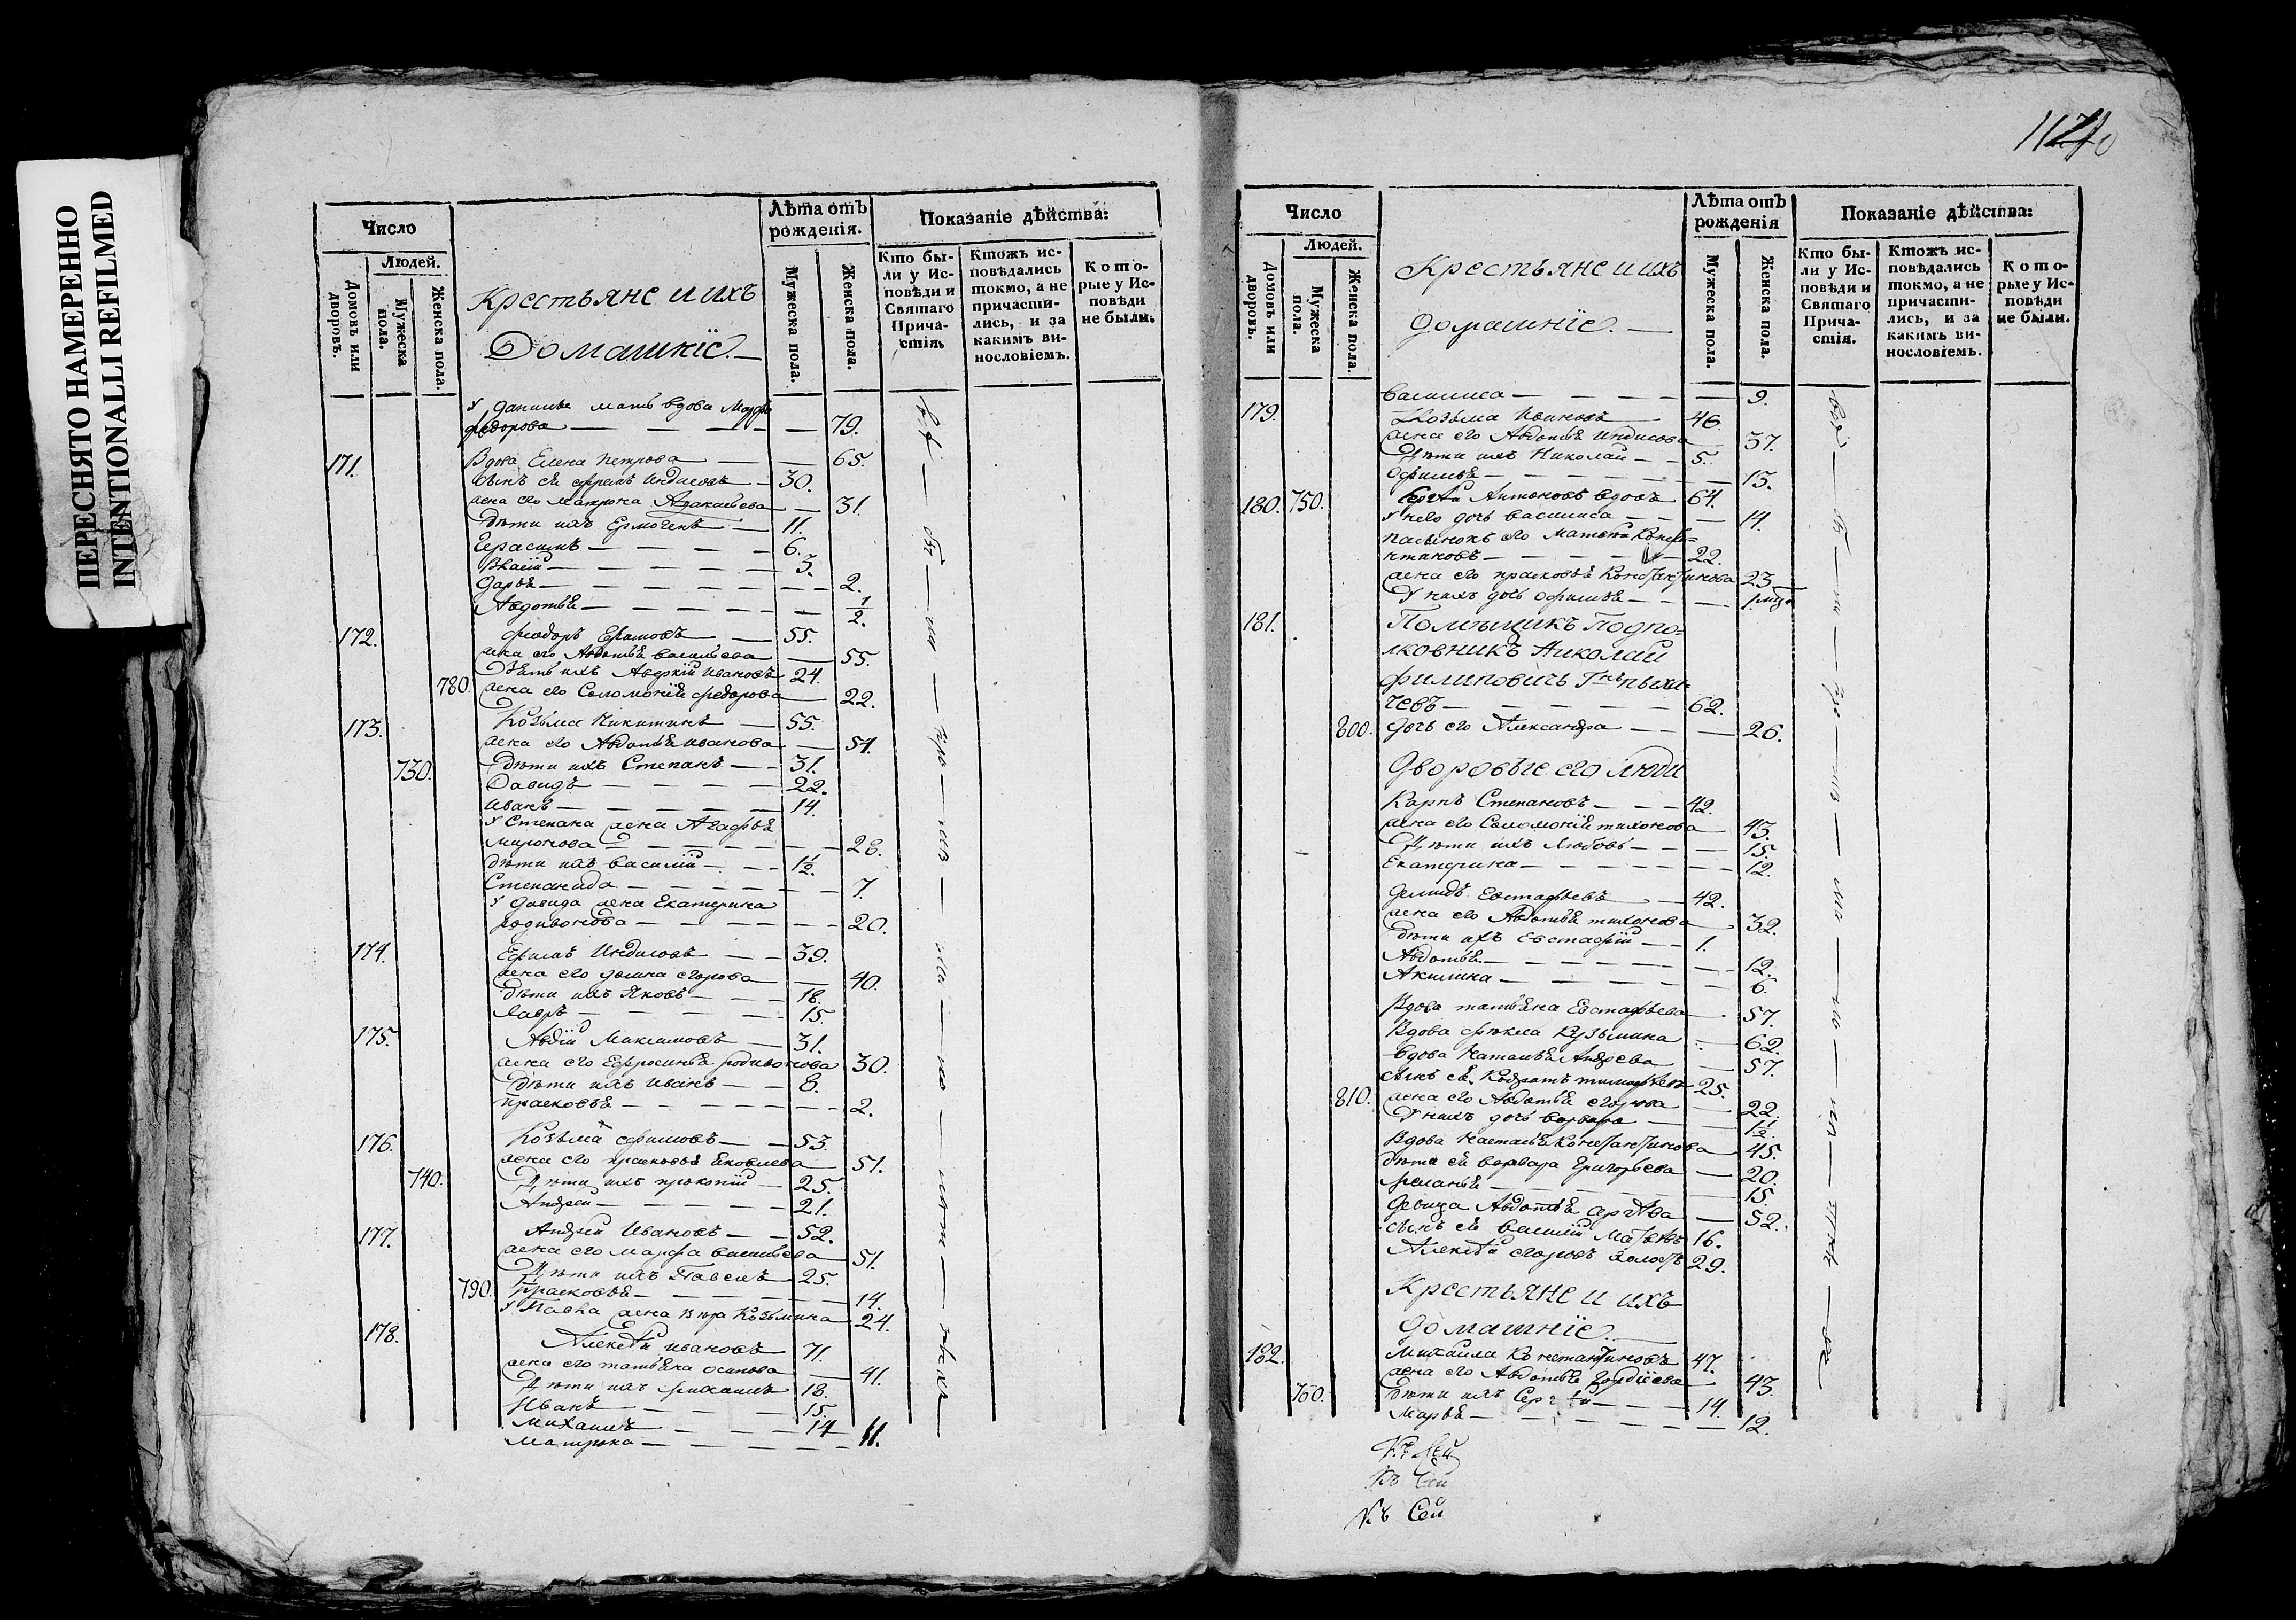 ПЕРЕСНЯТО НАМЕРЕННО
INTENTIONALLI REFILMED
Число
Людей.
Домовъ или дворовъ.
Мужеска пола.
Женска пола.
Крестьяне и ихъ
Домашніе.
Лѣта отъ рожденія.
Мужеска пола.
Женска пола.
Показаніе дѣйства:
Кто были у Исповѣди и Святаго Причастія.
Ктожъ исповѣдались токмо, а не причастились, и за какимъ винословіемъ.
Которые у Исповѣди не были.
у Данилы мать вдова Марфа
федорова — 79.
171. Вдова Елена Петрова — 65.
сынъ ея — 30.
жена его матрона — 31.
дѣти ихъ Ермогенъ — 11.
Герасимъ — 6.
— 3.
Дарья — 2.
Авдотья — 1/2.
172. феодоръ — 55.
жена его Авдотья васильева — 55.
ихъ Аверкій Ивановъ 24.
780. жена его Соломонія федорова — 22.
173. Козьма Никитинъ — 55.
жена его Авдотья иванова — 54.
730. дѣти ихъ Степанъ — 31.
Давидъ — 22.
иванъ — 14.
у Степана жена Агафья
миронова — 28.
дѣти ихъ василій — 1½.
Степанида — 7.
у Давида жена Екатерина
родивонова — 20.
174. Ефимъ — 39.
жена его домна егорова — 40.
дѣти ихъ Яковъ — 18.
Лавръ — 15.
175. Авдій Максимовъ — 31.
жена его Ефросинья родивонова 30.
дѣти ихъ иванъ — 8.
прасковья — 2.
176. Козьма ефимовъ — 53.
жена его прасковья Яковлева 51.
740. Дѣти ихъ прокопій — 25.
Андрей — 21.
177. Андрей Ивановъ — 52.
жена его Марфа васильева 51.
Дѣти ихъ Павелъ — 25.
790. Прасковья — 14.
у Павла жена Козьмина 24.
178. Алексѣй ивановъ 71.
жена его татьяна осипова — 41.
Дѣти ихъ 18.
Иванъ — 15.
Михаилъ — 14
Матрона — 11.
Число
Людей.
Домовъ или дворовъ.
Мужеска пола.
Женска пола.
Крестьяне и ихъ
домашніе.
Лѣта отъ рожденія
Мужеска пола.
Женска пола.
Показаніе дѣйства:
Кто были у Исповѣди и Святаго Причастія.
Ктожъ исповѣдались токмо, а не причастились, и за какимъ винословіемъ.
Которые у Исповѣди не были.
василиса — 9.
179. Козьма Ивановъ 46.
жена его Авдотья 37.
Дѣти ихъ Николай — 5.
Офимья — 13.
180. 750. Антоновъ вдовъ 64.
у него дочь василиса — 14.
пасынокъ его
— 22.
жена его прасковья Константинова 23
У нихъ дочь Офимья — 1.
181. Помѣщикъ Подпо=
лковникъ Николай
филиповичь Гнъ
62.
800. дочь его Александра — 26.
Дворовые его люди
Карпъ Степановъ — 42.
жена его Соломонія тихонова 43.
Дѣти ихъ Любовь — 15.
Екатерина — 12.
Демидъ Евстафьевъ — 42.
жена его Авдотья тихонова 32.
дѣти ихъ Евстафій — 1.
Авдотья — 12.
Акилина — 6
Вдова татьяна Евстафьева 57.
Вдова фекла Кузьмина — 62.
вдова Наталья Андреева 57.
сынъ ея Кодратъ 25.
810. жена его Авдотья егорова — 22.
У нихъ дочь варвара — 1½.
Вдова Наталья Константинова 45.
дѣти ея варвара Григорьева — 20.
— 15
Девица Авдотья — 52.
сынъ ея василій 16.
Алексѣй егоровъ 29.
Крестьяне и ихъ
домашніе.
182. Михаила Константиновъ 47.
жена его Авдотья 43.
760. дѣти ихъ Сергѣй — 14.
Марья — 12.
Къ Сей
Къ Сей
Къ Сей